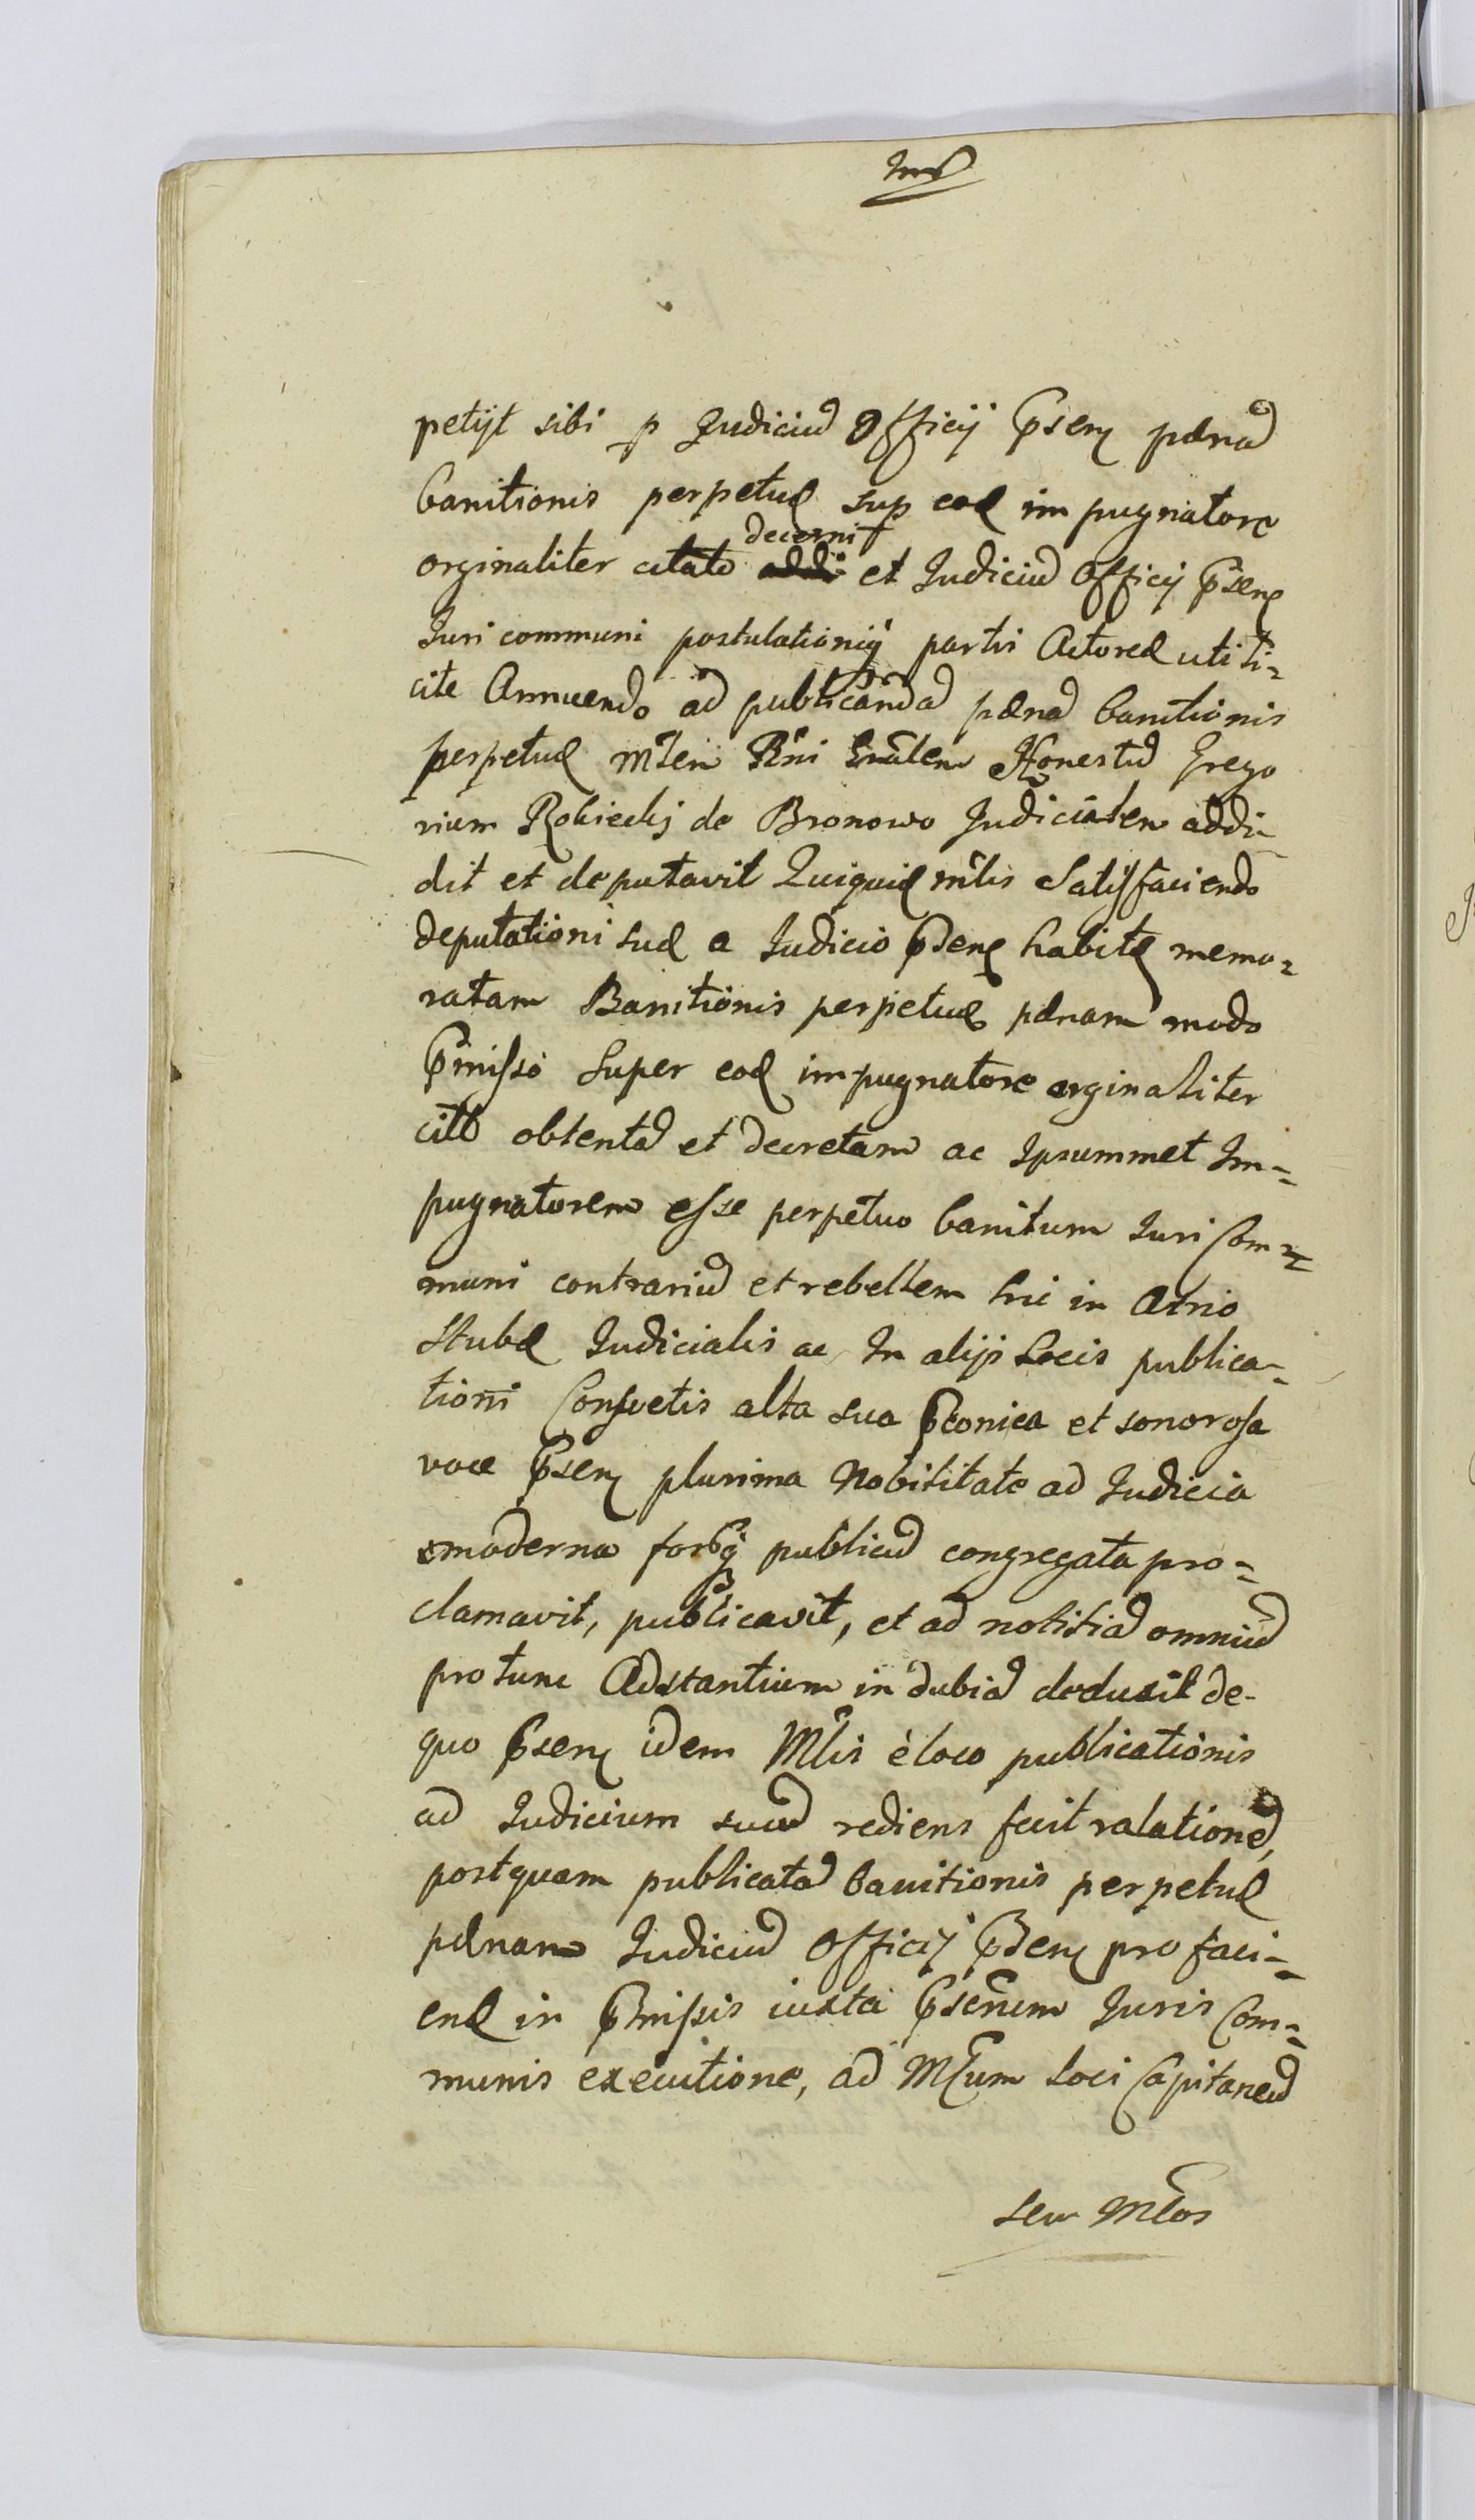 petijt sibi p Judiciũ Officij p̃sens pænã
banitionis perpetuæ sup eod impugnatore
orginaliter citato addi decernit et Judiciũ Officij p̃sens
Juri communi postulationiq̃ partis Actoreæ utili=
cite Annuendo ad publicandã pænã banitionis
perpetuæ mĩlem Rñi Gñalem Honestũ Grego
rium Robiecki de Bronowo Judicialem addi=
dit et deputavit Quiquid mĩlis Satisfaciendo
deputationi suæ a Judicio p̃sens habitæ memo=
ratam Banitionis perpetuæ pænam modo
p̃misso super eod impugnatore orginaliter
citto obtentã et decretam ac Ipsummet Im=
pugnatorem esse perpetuo banitum Juri Com=
muni contrariũ et rebellem hic in Atrio
Stubæ Judicialis ac In alijs Locis publica=
tioni Consvetis alta sua p̃conica et sonorosa
voce p̃sens plurima Nobilitate ad Judicia
moderna forũq̃ publicũ congregata pro=
clamavit, publicavit, et ad notitiã omniũ
protunc Adstantium in dubiã deduxit de-
quo p̃sens idem Mĩlis è loco publicationis
ad Judicium suũ rediens fecit ralationẽ,
postquam publicatã banitionis perpetuæ
pænam Judiciũ Officij p̃sens pro faci=
end in p̃missis iuxta p̃sentem Juris Com=
munis executione, ad Mĩũm Loci Capitaneũ
seu Mĩcos